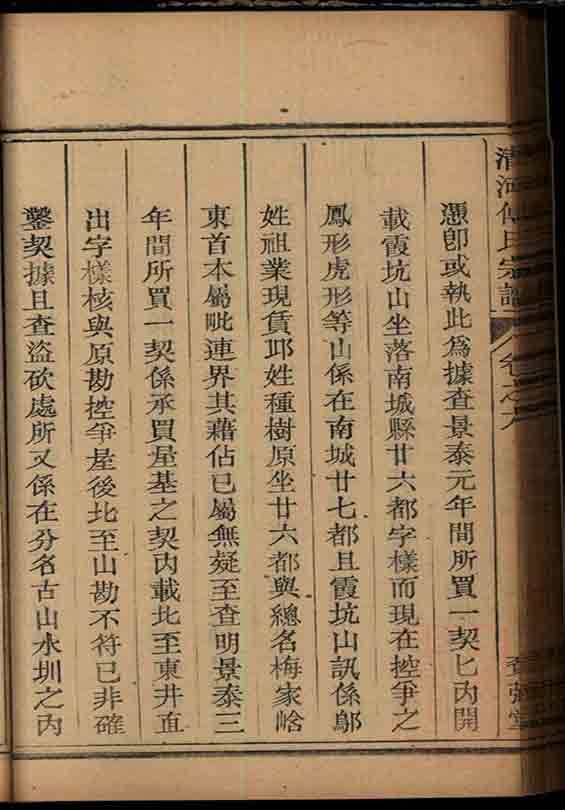 清河傅氏宗譜 卷之九
憑卽或執此爲據查景泰元年間所買一契匕內開
載霞坑山坐落南城縣廿六都字樣而現在控爭之
鳳形虎形等山係在南城廿七都且霞坑山訊係鄔
姓祖業現賃邛姓種樹原坐廿六都與總名梅家峆
東首本屬毗連界其藉佔已屬無疑至查明景泰三
年間所買一契係承買屋基之契內載北至東井直
出字樣核與原勘控爭屋後北至山勘不符已非確
鑿契據且查盜砍處所又係在分名古山水圳之內